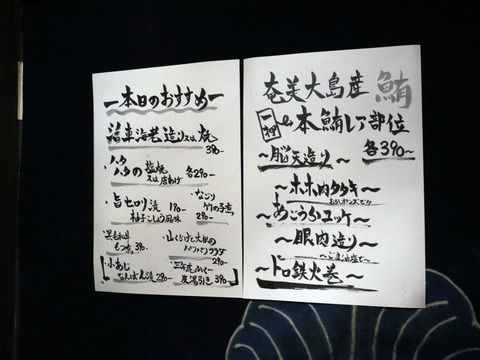 ー本日のおすすめー
活車海老 造り又は焼
390-
・ハタ
ハタの塩焼
又は唐あげ
各290-
・旨セロリ漬 190-
柚子こしょう風味
竹の子煮
290-
・黒毛和牛
もつ煮 390-
・山くらげと大根の
パリパリサラダ
290-
・小あじ
なんばん漬 290-
皮湯引き 390-
奄美大島産 鮪
一押 本鮪レア部位
各390-
〜脳天造り〜
〜ホホ肉タタキ〜
おろしポンズで!!
〜あごうらユッケ〜
〜眼肉造り〜
〜ごま油塩で〜
〜トロ鉄火巻〜